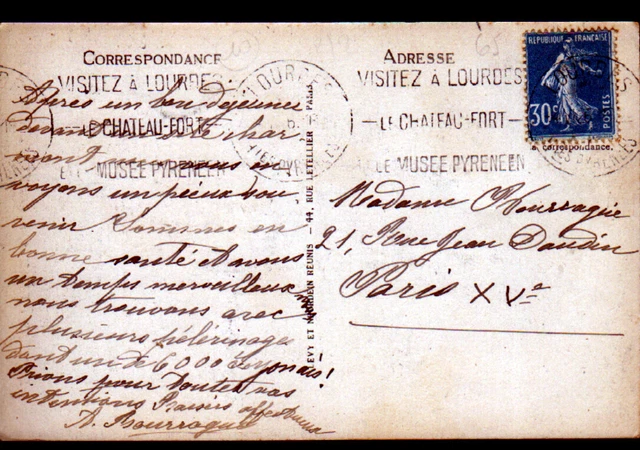 CORRESPONDANCE
VISITEZ À LOURDES
LE CHATEAU-FORT
MUSEE PYRENEEN
Après un bon déjeuner
dans char
mant nous en
voyons un pieux sou
venir Sommes en
bonne santé et avons
un temps merveilleux
nous trouvons avec
plusieurs pélérinages
dont un de 6000 Lyonnais!
Prions pour toutes vos
intentions Baisers affectueux
A. Bourragué
LEVY ET NEURDEIN RÉUNIS — 44, RUE LETELLIER, PARIS
ADRESSE
VISITEZ À LOURDES
—LE CHATEAU-FORT—
LE MUSEE PYRENEEN
LOURDES
REPUBLIQUE FRANÇAISE
30c
POSTES
correspondance.
Madame Bourragué
21, Rue Jean Daudin
Paris XVe